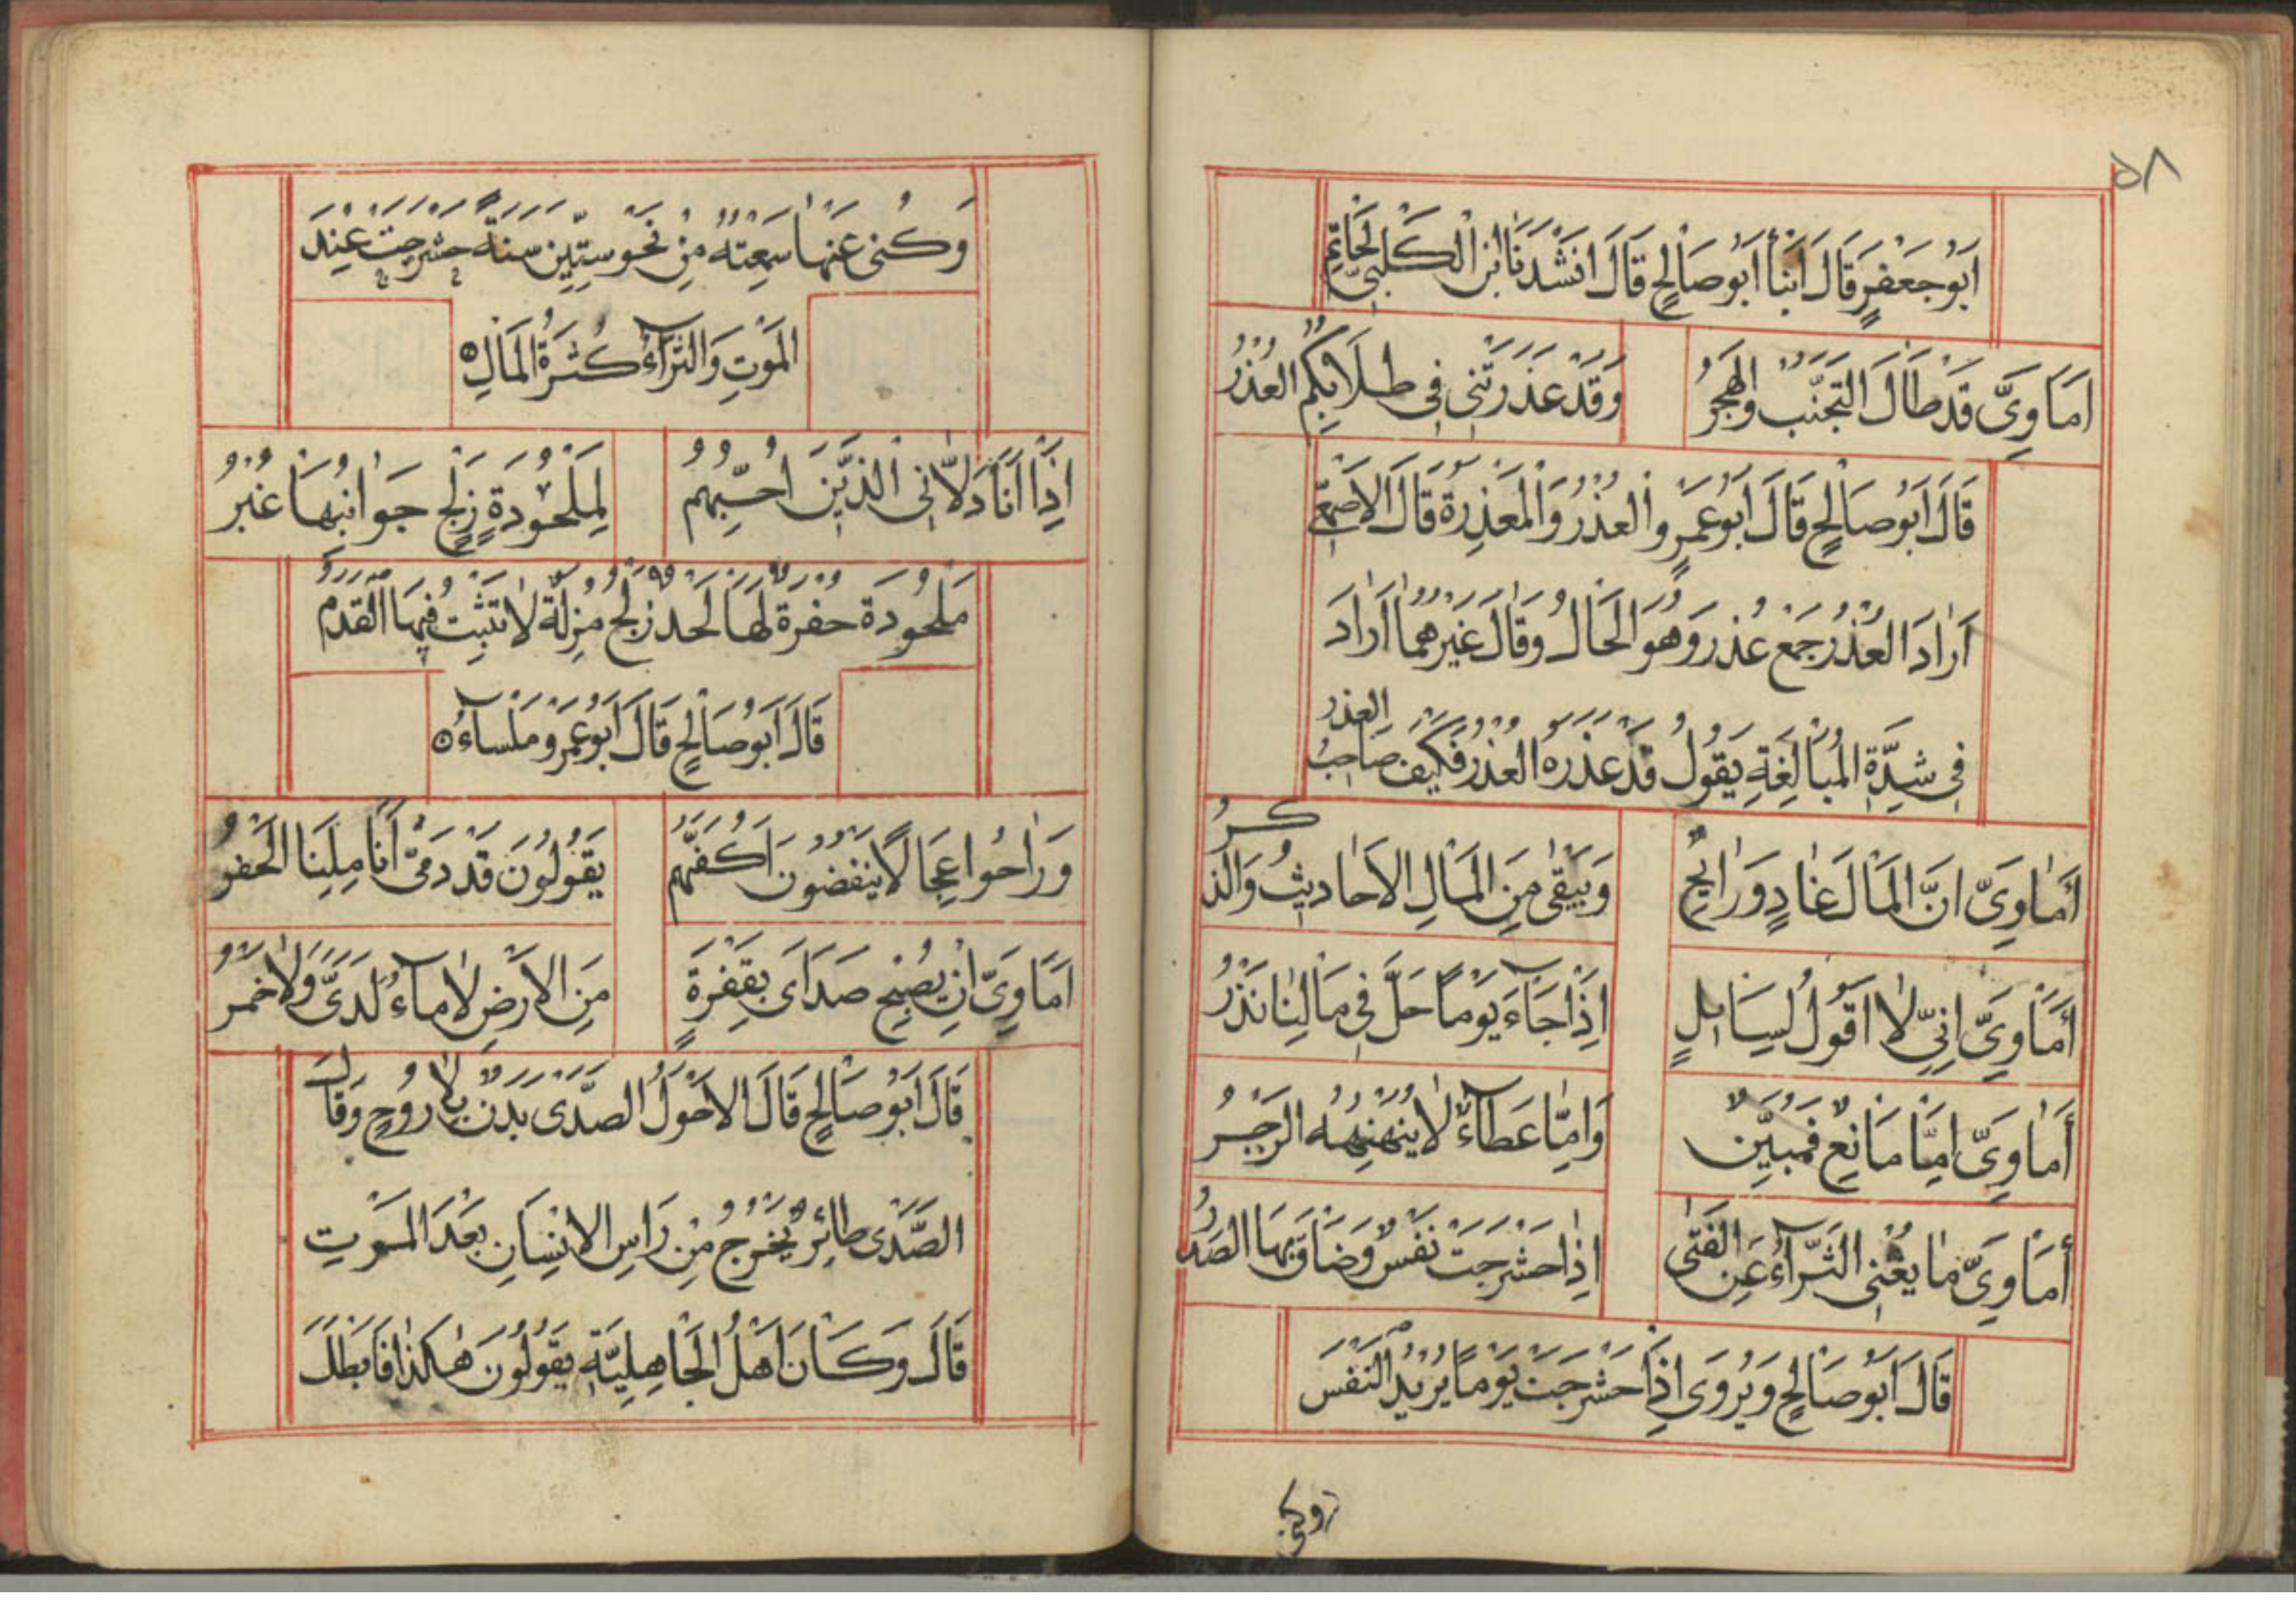 ٥٨
اَبُو جَعْفَرٍ قَالَ اَنْبَأَ اَبُو صَالِحٍ قَالَ اَنْشَدَنَا ابْنُ الْكَلْبِيِّ لِحَاتِمٍ
اَمَاوِيَّ قَدْ طَالَ التَّجَنُّبُ وَالْهَجْرُ وَقَدْ عَذَرَتْنِي فِي طِلَابِكُمُ الْعُذْرُ
قَالَ اَبُو صَالِحٍ قَالَ اَبُو عَمْرٍو الْعُذُرُ وَالْمَعْذِرَةُ قَالَ الْاَصْمَعِيُّ
اَرَادَ الْعُذُرُ جَمْعُ عُذْرٍ وَهُوَ الْحَالُ وَقَالَ غَيْرُهُمَا اَرَادَ
فِي شِدَّةِ الْمُبَالَغَةِ يَقُولُ قَدْ عَذَرَهُ الْعُذْرُ فَكَيْفَ صَاحِبُ العذر
أَمَاوِيَّ اِنَّ الْمَالَ غَادٍ وَرَائِحٌ وَيَبْقَى مِنَ الْمَالِ الْاَحَادِيثُ وَالذِّكْرُ
أَمَاوِيَّ اِنِّي لَا اَقُولُ لِسَائِلٍ اِذَا جَاءَ يَوْمًا حَلَّ فِي مَالِنَا نَذْرُ
أَمَاوِيَّ اِمَّا مَانِعٌ فَمُبَيِّنٌ وَاِمَّا عَطَاءٌ لَا يُنَهْنِهُهُ الزَّجْرُ
أَمَاوِيَّ مَا يُغْنِي الثَّرَاءُ عَنِ الْفَتَى اِذَا حَشْرَجَتْ نَفْسٌ وَضَاقَ بِهَا الصَّدْرُ
قَالَ اَبُو صَالِحٍ وَيُرْوَى اِذَا حَشْرَجَتْ يَوْمًا يُرِيدُ النَّفْسَ
وكنى
وَكُنِى عَنْهَا سَمِعْتُهُ مِنْ نَحْوِ سِتِّينَ سَنَةً حَشْرَجَتْ عِنْدَ
الْمَوْتِ وَالثَّرَاءُ كَثْرَةُ الْمَالِ
اِذَا اَنَا دَلَّانِي الَّذِينَ اُحِبُّهُمْ لِمَلْحُودَةٍ زَلْجٍ جَوَانِبُهَا غُبْرُ
مَلْحُودَة حُفْرَةٌ لَهَا لَحْدٌ زَلْجٌ مُزِلَّةٌ لَا تَثْبُتُ فِيهَا الْقَدَمُ
قَالَ اَبُو صَالِحٍ قَالَ اَبُو عَمْرٍو مَلْسَاءُ
وَرَاحُوا عِجَالًا يَنْفُضُونَ اَكُفَّهُمْ يَقُولُونَ قَدْ دَمَّى اَنَامِلَنَا الْحَفْرُ
اَمَاوِيَّ اِنْ يُصْبِحْ صَدَاىَ بِقَفْرَةٍ مِنَ الْاَرْضِ لَا مَاءٌ لَدَيَّ وَلَا خَمْرُ
قَالَ اَبُو صَالِحٍ قَالَ الْاَحْوَلُ الصَّدَى بَدَنٌ بِلَا رُوحٍ وَقَالَ
الصَّدَى طَائِرٌ يَخْرُجُ مِنْ رَاسِ الْاِنْسَانِ بَعْدَ الْمَوْتِ
قَالَ وَكَانَ اَهْلُ الْجَاهِلِيَّةِ يَقُولُونَ هٰكَذَا فَاَبْطَلَ